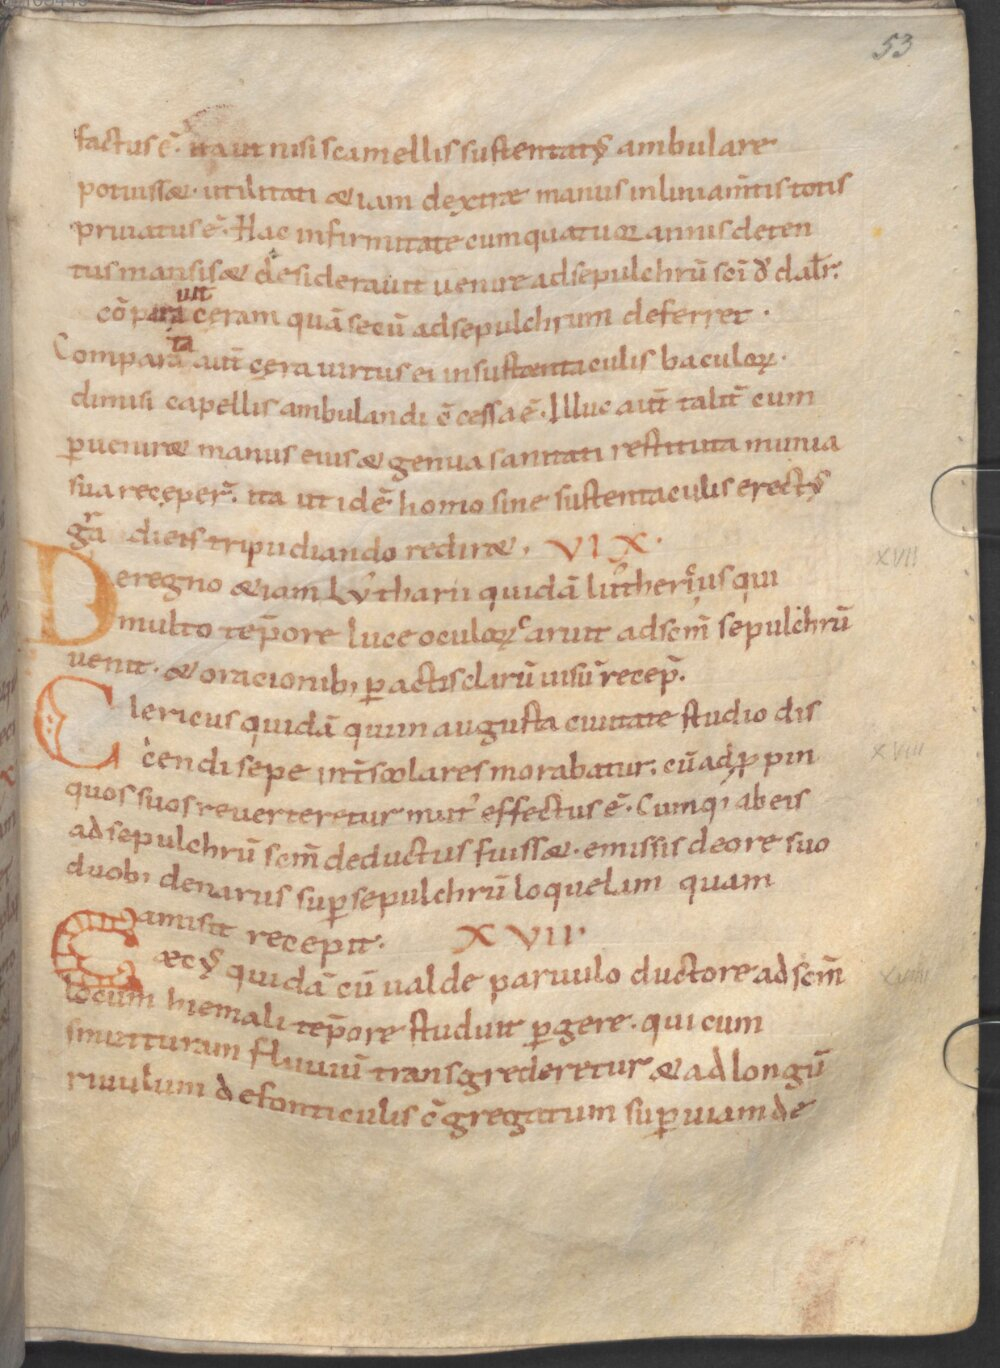 53
factus ē. ita ut nisi scamellis sustentatꝰ ambulare
potuisset. utilitati etiam dextræ manus in liniam̄tis totis
priuatus ē. Hac infirmitate cum quatuor annis deten
tus mansisset desiderauit uenire ad sepulchrū sc̄i
uit
cōpara ceram quā secū ad sepulchrum deferret.
ta
Comparā aut̄ cera uirtus ei in sustentaculis baculoꝝ.
dimisi capellis ambulandi c̄cessa ē. Illuc aut̄ talit̄ cum
ꝑueniret manus eius et genua sanitati restituta munia
sua receper̄. ita ut idē homo sine sustentaculis erectꝰ
gr̄a dei et tripudiando rediret. VIX.
De regno etiam Lvtharii quidā liuther'us qui
multo tēpore luce oculoꝝ caruit ad scm̄ sepulchrū
uenit. et oracionibꝫ ꝑactis clarū uisū recep̄.
Clericus quidā qui in augusta ciuitate studio dis
cendi sepe int̄ scolares morabatur. cū ad ꝓpin
quos suos reuerteretur mut' effectus ē. Cumqꝫ ab eis
ad sepulchrū scm̄ deductus fuisset. emissis de ore suo
duobꝫ denariis suꝑ sepulchrū loquelam quam
amisit recepit. XVII.
Cæcꝰ quidā cū ualde paruulo ductore ad scm̄
locum hiemali tēpore studuit ꝑgere. qui cum
smutturam fluuiū transgrederetur et ad longū
riuulum de fonticulis c̄gregatum suꝑ uiam de
XVII
XVIII
XVIIII